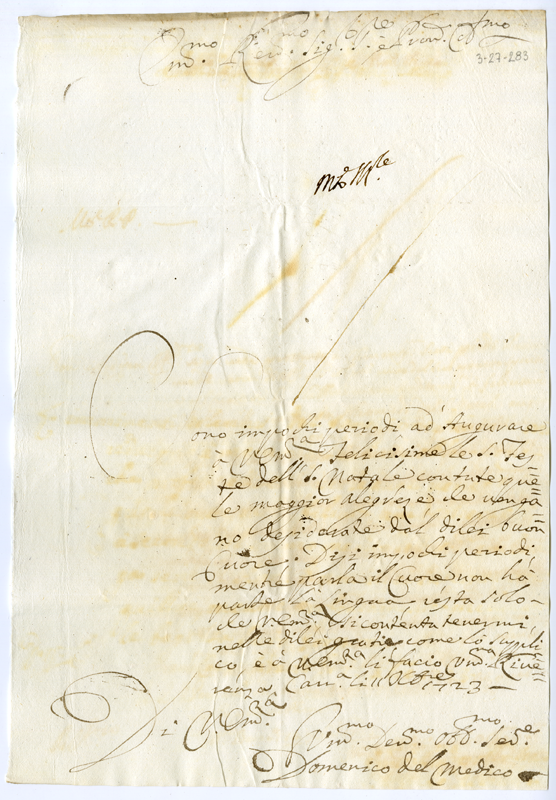 Em.mo Rev.mo Sig.re Sig.e e Pron. Col.mo
3-27-283
ono in pochi periodi ad Augurare
à V. Em.a felicisime le S. Fes=
te dell S. Natale con tute que=
le maggior alegreze che venga=
no desiderate dal di lei buon
Cuore. Disi in pochi periodi,
mentre parla il Cuore non hà
parte la lingua, resta solo
che V. Em.a si contenta tenermi
nelle di lei gratie come lo supli=
co, è à V. Em.a li facio Um.ma Rive=
renza Car.a li 11 Xbre 1723 —
Di V. Em.za
Um.mo Dev.mo Obb.mo Ser.e
Domenico del Medico